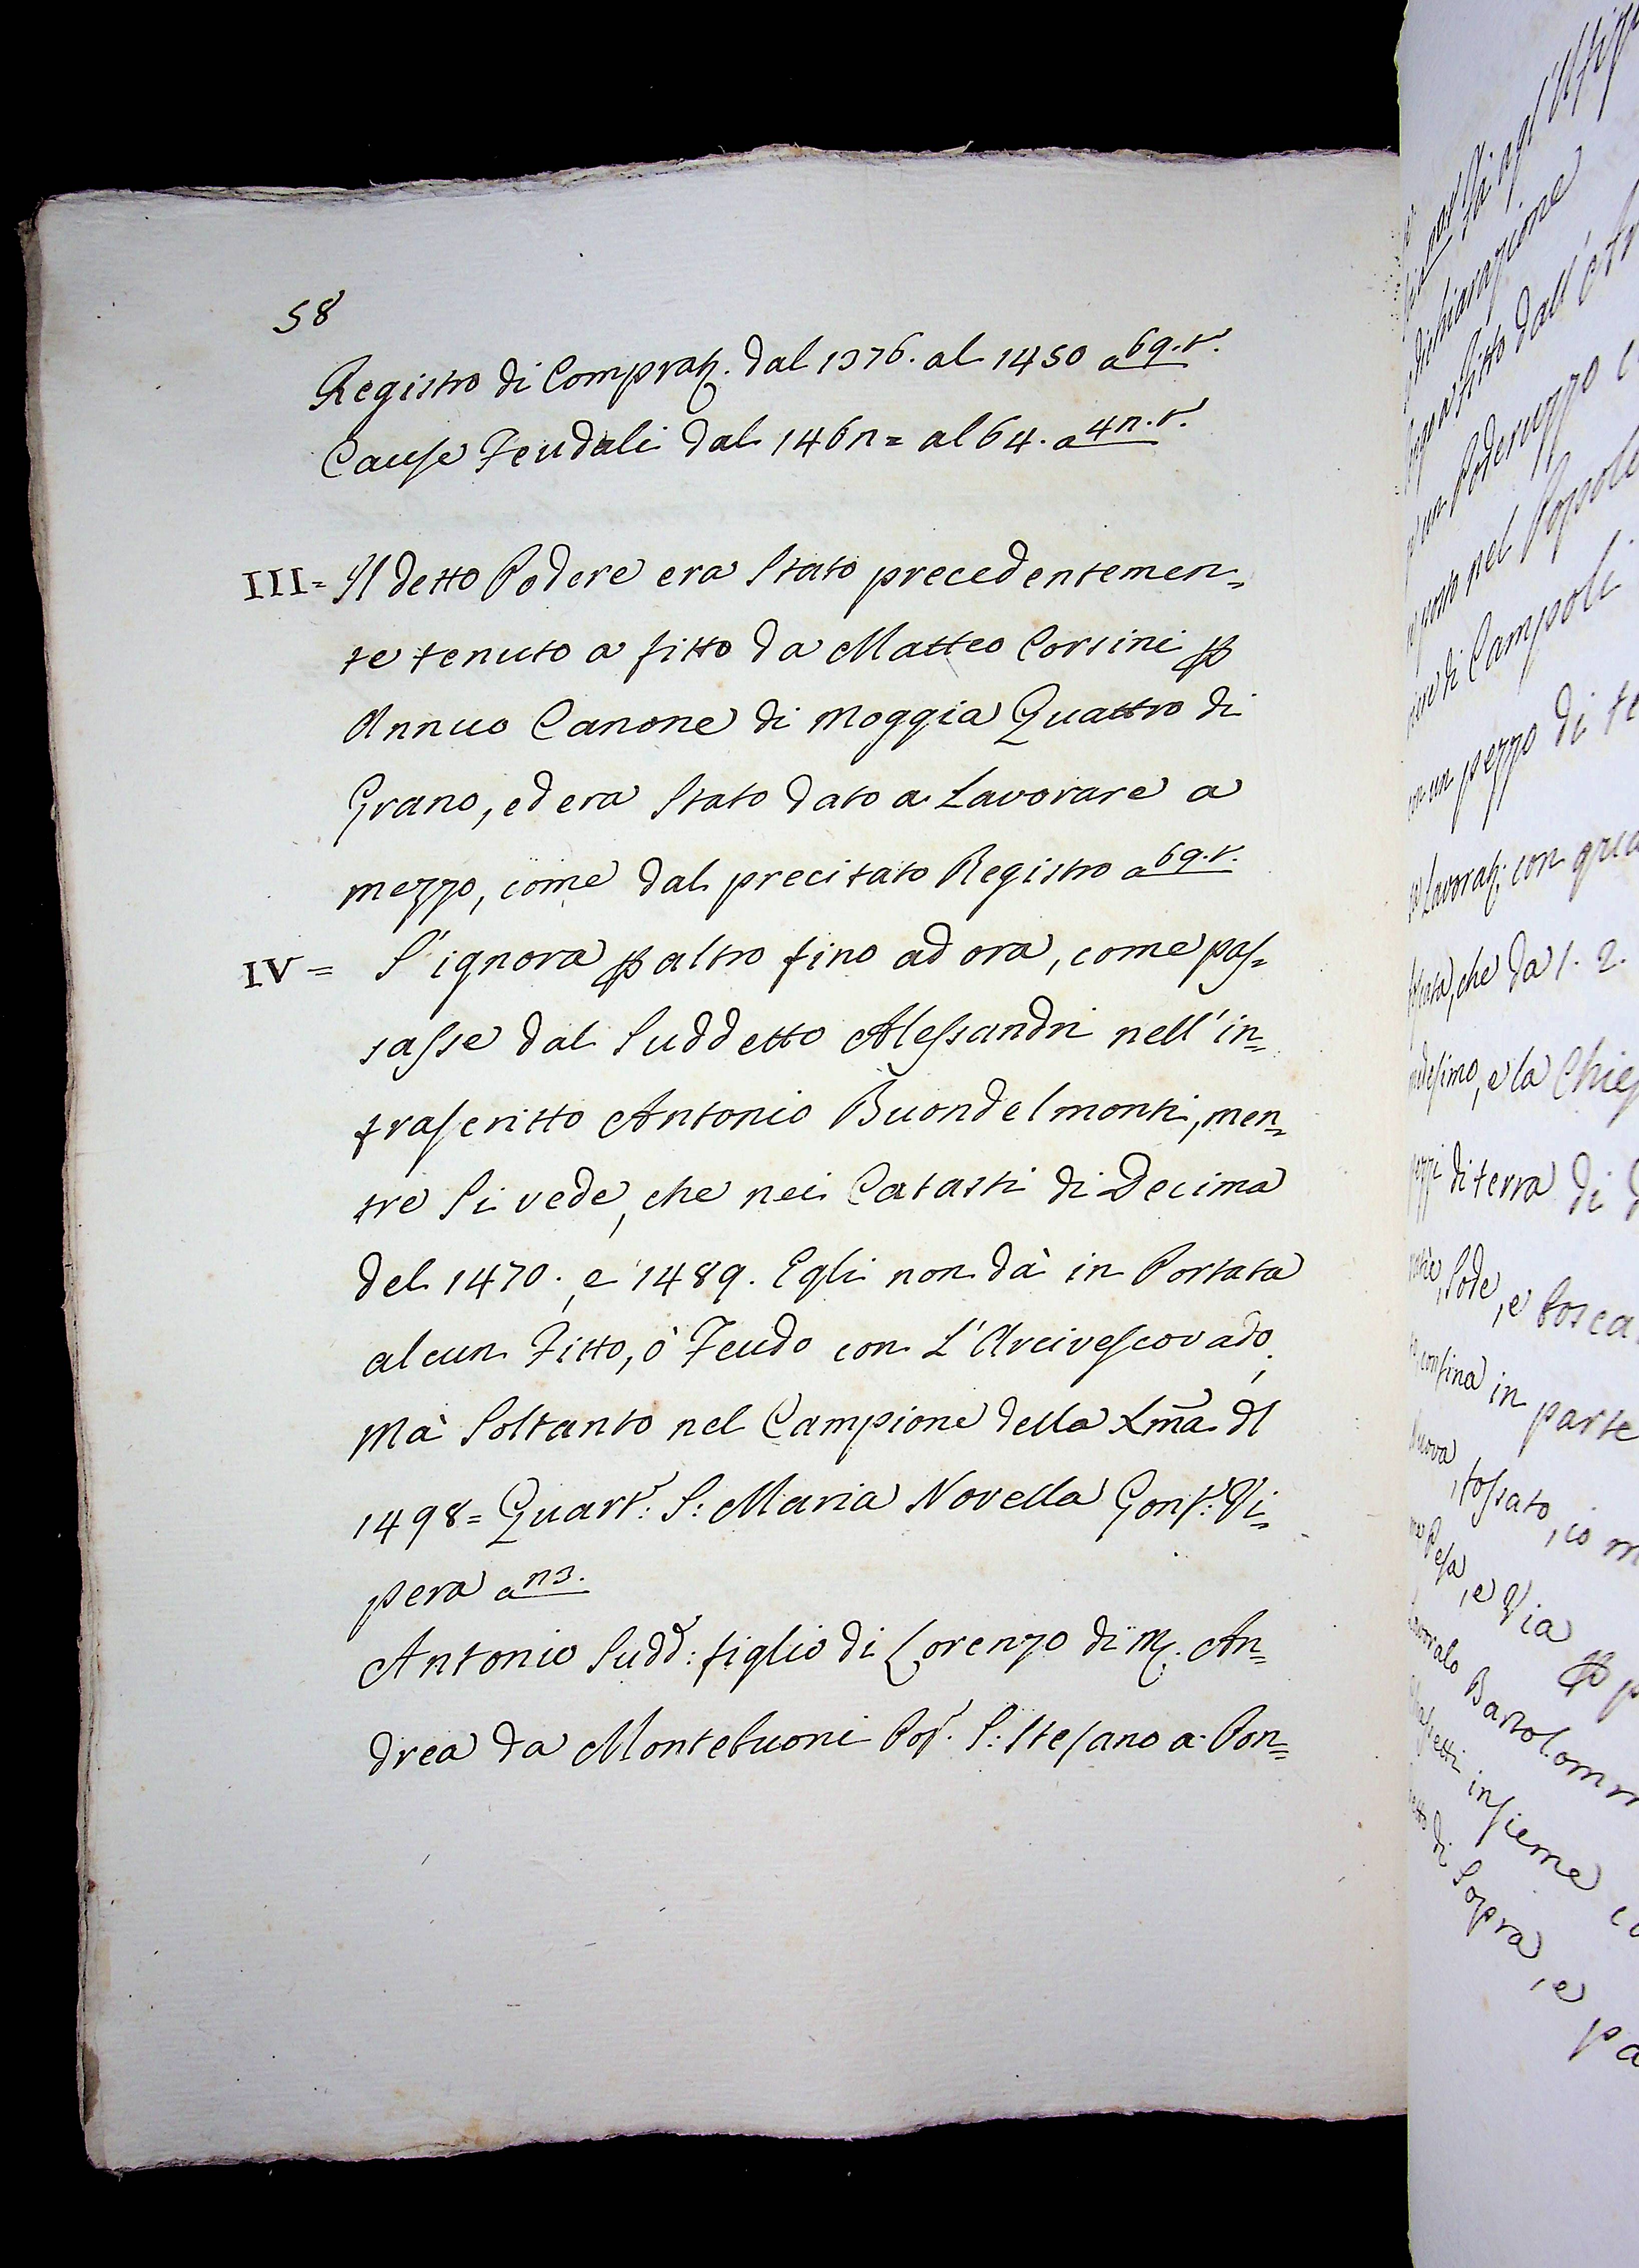 58
Registro di Compraz. dal 1376. al 1450 a 69.t.
Cause Feudali dal 1462= al 64. a 42.t.
III= Il detto Podere era stato precedentemen=
te tenuto a fitto da Matteo Corsini ꝑ
Annuo Canone di Moggia Quattro di
Grano, ed era stato dato a Lavorare a
mezzo, come dal precitato Registro a 69.t.
IV= S'ignora ꝑ altro fino ad ora, come pas=
sasse dal Suddetto Alessandri nell'in=
frascritto Antonio Buondelmonti, men=
tre si vede, che nei Catasti di Decima
del 1470., e 1489. Egli non dà in Portata
alcun Fitto, ò Feudo con L'Arcivescovado,
Mà Soltanto nel Campione della Xma dl
1498= Quart: S: Maria Novella Gonf: Vi=
pera a 23.
Antonio Sudd: figlio di Lorenzo di M. An=
drea da Montebuoni Pop. S: Stefano a Pon=
dichiarazione
Fitto dall'
un Poderuzzo
posto nel Popolo
di Campoli
un pezzo di te
Lavoraz; con qua
che da 1. 2.
medesimo, e la Chie
pezzi di terra di
Sode, e bosca
confina in parte
fossato, io m
Pesa, e Via ꝑ p
Bartolomm
insieme co
di Sopra, e pa